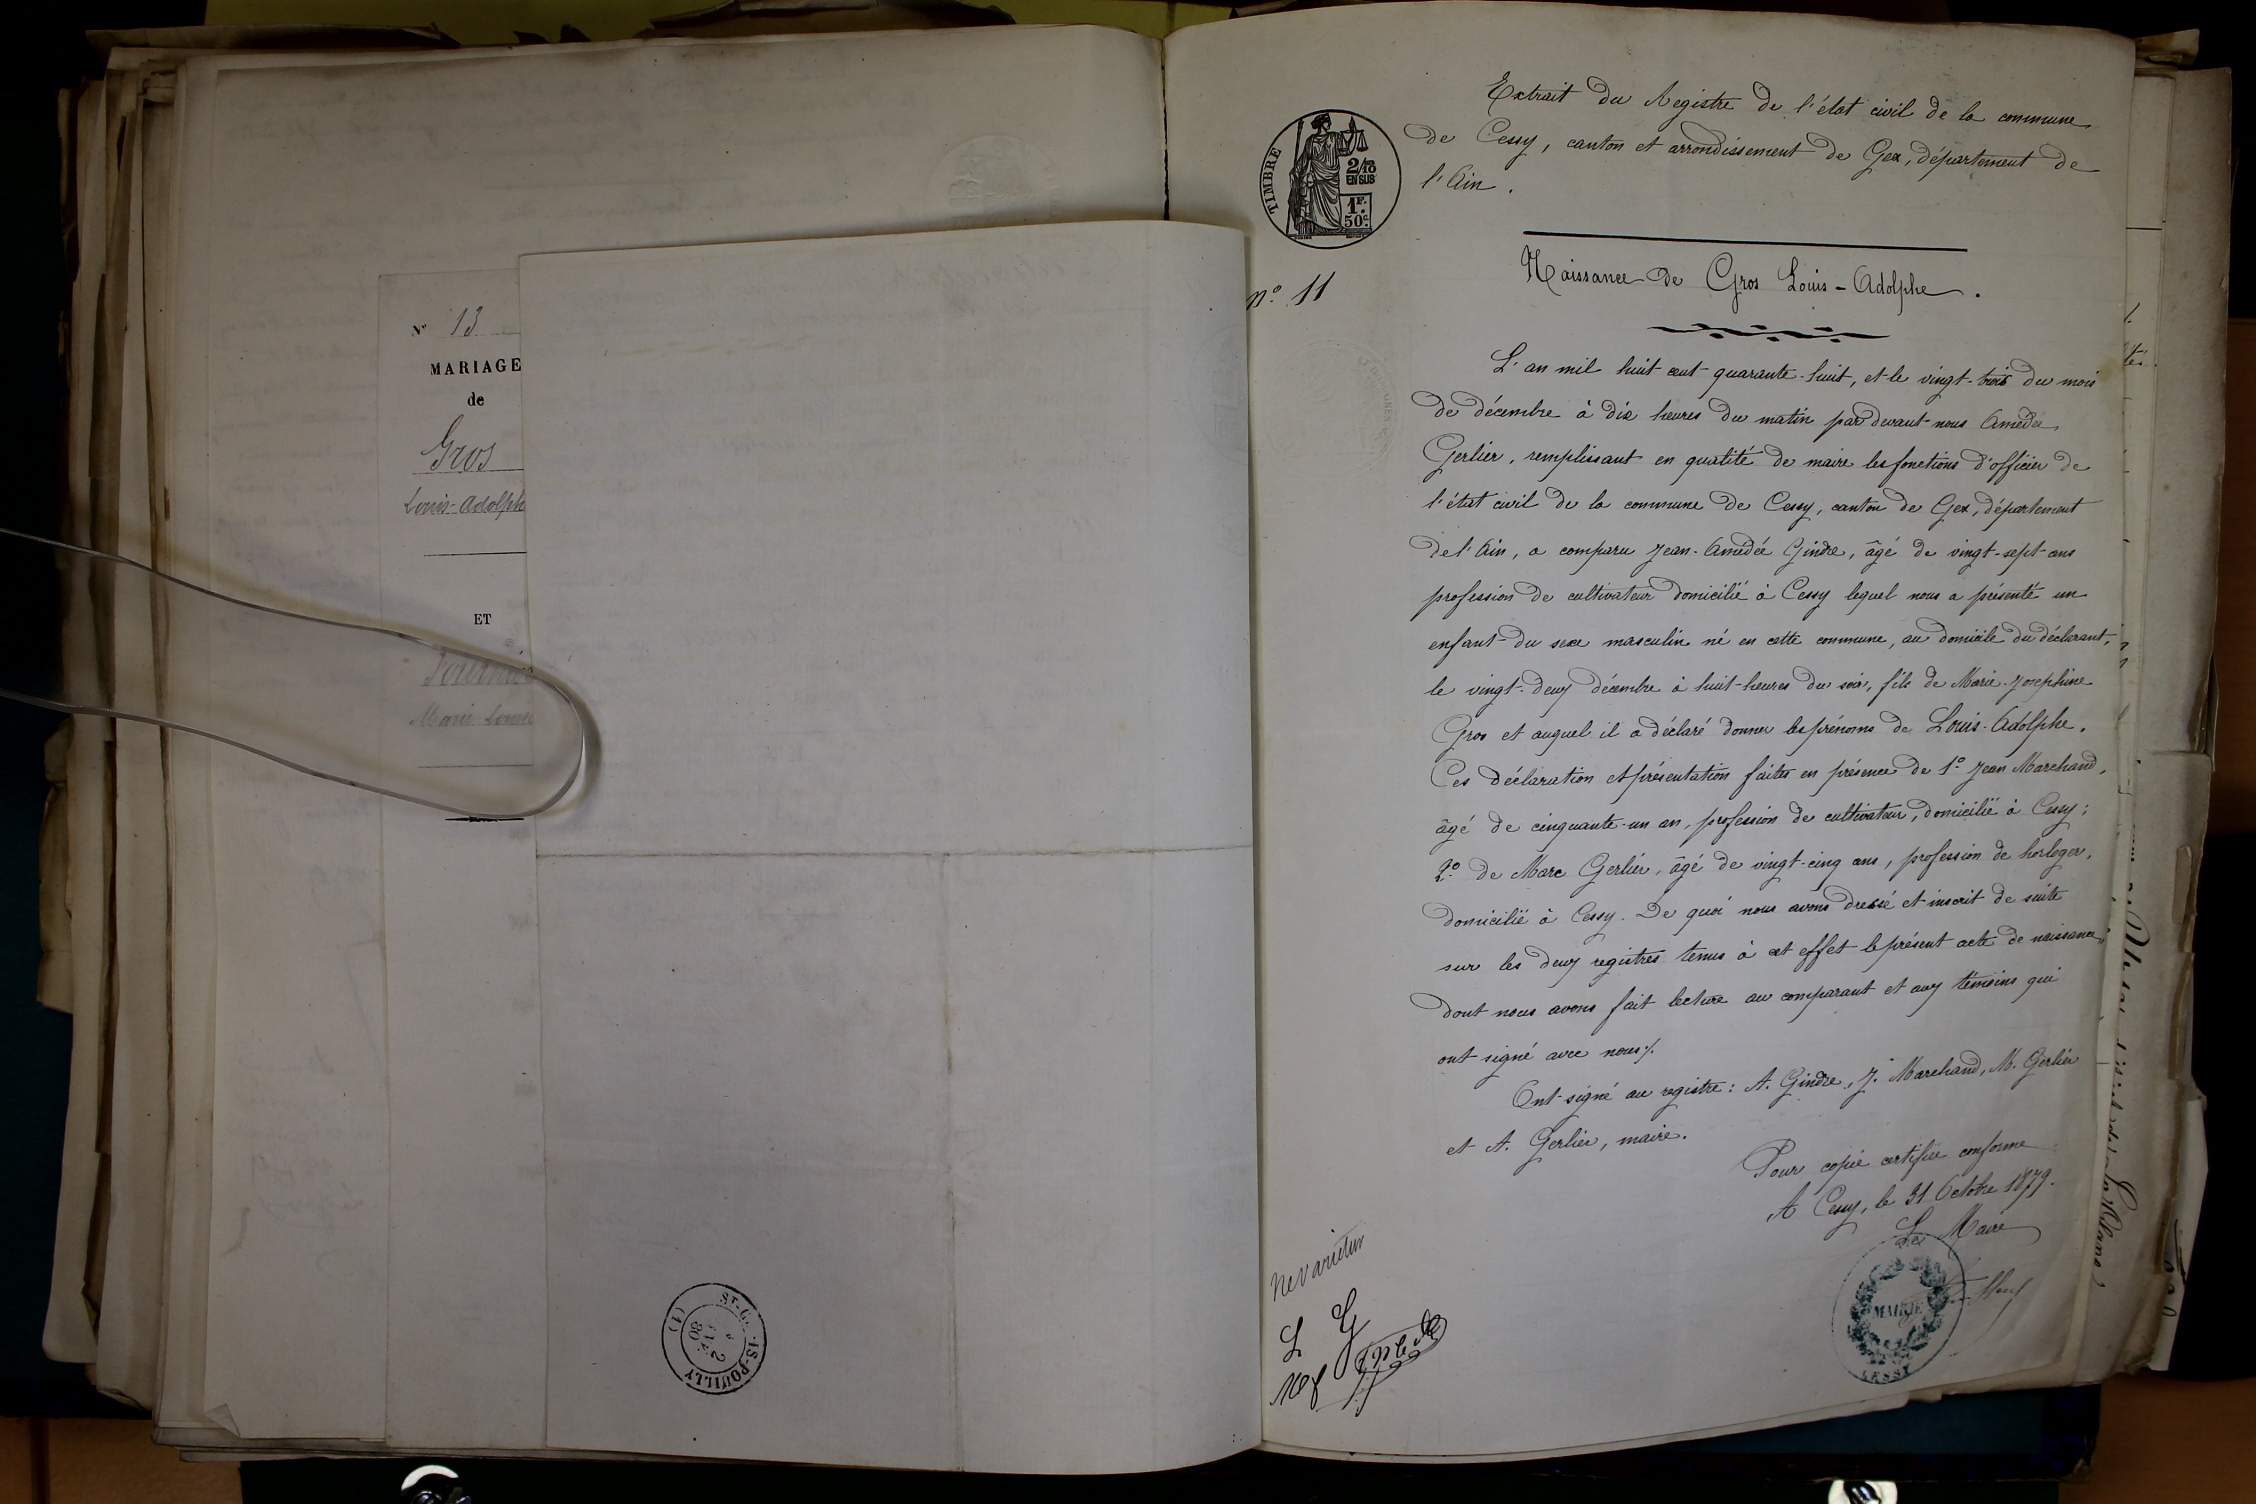 N° 13
MARIAGE
de
Gros
Louis-Adolphe
ET
Marie-Louise
ST-G IS-POUILLY
(1)
2
80
TIMBRE
2/10
EN SUS
1F.
50c.
Extrait du Registre de l'état civil de la commune
de Cessy, canton et arrondissement de Gex, département de
l'Ain.
n° 11
Naissance de Gros Louis-Adolphe.
L'an mil huit cent quarante-huit, et le vingt-trois du mois
de décembre à dix heures du matin par devant nous Amédée
Gerlier, remplissant en qualité de maire les fonctions d'officier de
l'état civil de la commune de Cessy, canton de Gex, département
de l'Ain, a comparu Jean-Amédée Gindre, âgé de vingt-sept ans
profession de cultivateur domicilié à Cessy lequel nous a présenté un
enfant du sexe masculin né en cette commune, au domicile du déclarant,
le vingt-deux décembre à huit heures du soir, fils de Marie-Josephine
Gros et auquel il a déclaré donner les prénoms de Louis-Adolphe.
Ces déclaration et présentation faites en présence de 1° Jean Marchand,
âgé de cinquante-un an, profession de cultivateur, domicilié à Cessy;
2° de Marc Gerlier, âgé de vingt-cinq ans, profession de horloger,
domicilié à Cessy. De quoi nous avons dressé et inscrit de suite
sur les deux registres tenus à cet effet le présent acte de naissance,
dont nous avons fait lecture au comparant et aux témoins qui
ont signé avec nous./.
Ont signé au registre: A. Gindre, J. Marchand, M. Gerlier
et A. Gerlier, maire.
Pour copie certifiée conforme
A Cessy, le 31 Octobre 1879.
Le Maire
MAIRIE
CESSY
Ne varietur
L G